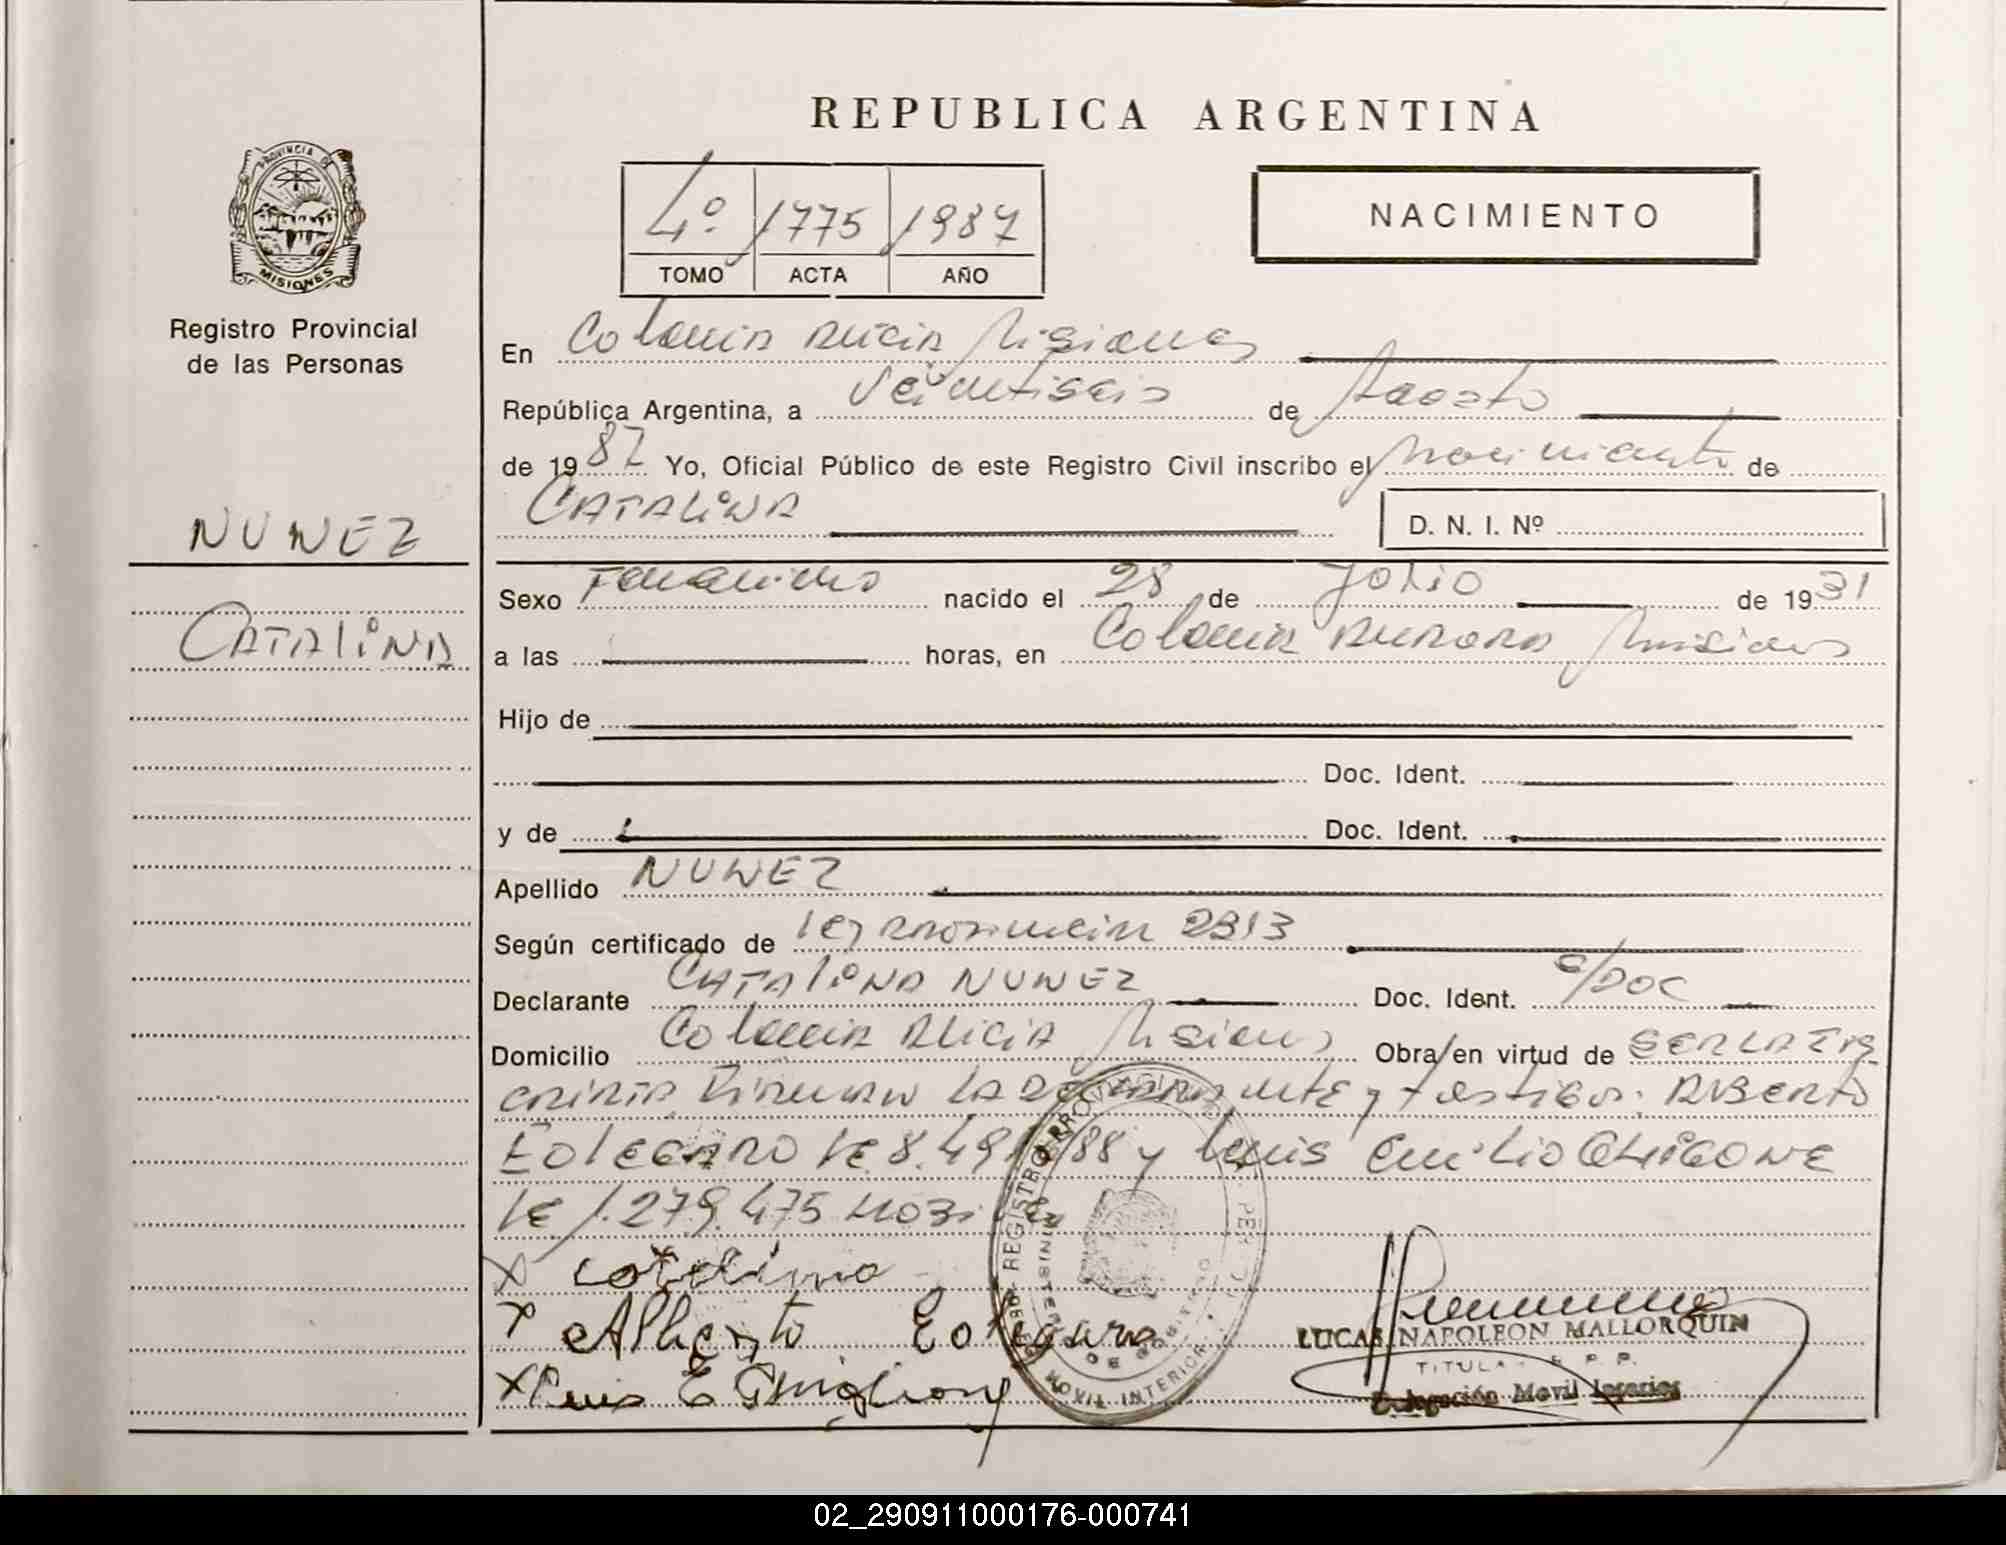 REPUBLICA ARGENTINA
PROVINCIA DE
MISIONES
Registro Provincial
de las Personas
4º 1775 1987
TOMO ACTA AÑO
NACIMIENTO
En Colonia Alicia Misiones
República Argentina, a Veintiseis de Agosto
de 1987 Yo, Oficial Público de este Registro Civil inscribo el Nacimiento de
CATALINA
D. N. I. Nº
NUNEZ
CATALINA
Sexo Femenino nacido el 28 de Julio de 1931
a las horas, en Colonia Aurora Misiones
Hijo de
Doc. Ident.
y de Doc. Ident.
Apellido NUNEZ
Según certificado de Ley Provincial 2313
Declarante CATALINA NUNEZ Doc. Ident. S/DOC
Domicilio Colonia Alicia Misiones Obra/en virtud de
Firman la declarante y testigos: Alberto
LE 8.491 88 y Luis Emilio
LE 1.279.475
x catalina
x Alberto
x Luis E Ghiglione
REGISTRO PROVINCIAL
MOVIL INTERIOR
LUCAS NAPOLEON MALLORQUIN
TITULAR R. P. P.
Delegación Movil
02_290911000176-000741